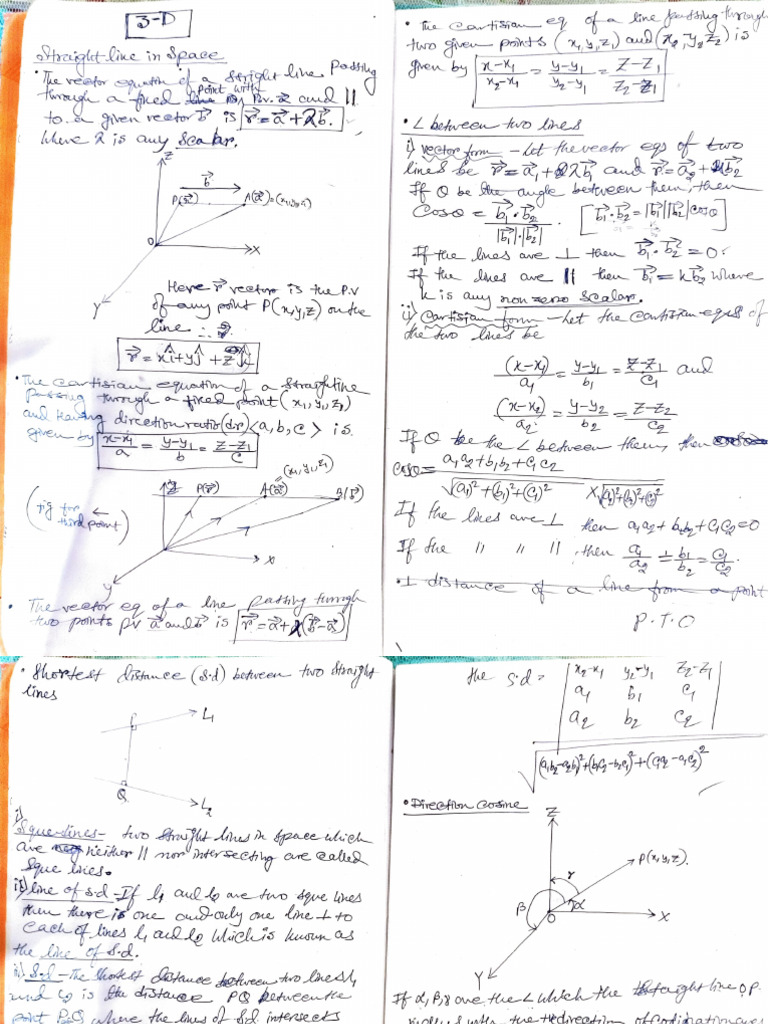 3-D
Straight line in space
• The vector equation of a stright line passing
through a fixed point with P.V. a⃗ and ||
to a given vector b⃗ is r⃗ = a⃗ + λb⃗.
where λ is any scalar.
Z
b⃗
P(r⃗) A(a⃗) = (x₁, y₁, z₁)
O
X
Y
Here r⃗ vector is the P.V
of any point P(x, y, z) on the
line ∴
r⃗ = xî + yĵ + zk̂
• The cartisian equation of a straightline
passing through a fixed point (x₁, y₁, z₁)
and having dircetion ratio (dr) <a, b, c> is
given by x-x₁/a = y-y₁/b = z-z₁/c
(x₁, y₁, z₁)
Z P(r⃗) A(a⃗) B(b⃗)
(fig for ←
third point)
X
Y
• The vector eq of a line passing through
two points P.V a⃗ and b⃗ is r⃗ = a⃗ + λ(b⃗ - a⃗)
• The cartisian eq of a line passing through
two given points (x₁, y₁, z₁) and (x₂, y₂, z₂) is
given by x-x₁/x₂-x₁ = y-y₁/y₂-y₁ = z-z₁/z₂-z₁
• ∠ between two lines
i) vector form - Let the vector eqs of two
lines be r⃗ = a⃗₁ + λb⃗₁ and r⃗ = a⃗₂ + λb⃗₂
If θ be the angle between them, then
cosθ = b⃗₁·b⃗₂/|b⃗₁|·|b⃗₂| [b⃗₁·b⃗₂ = |b⃗₁||b⃗₂|cosθ]
If the lines are ⊥ then b⃗₁·b⃗₂ = 0.
If the lines are || then b⃗₁ = kb⃗₂ where
k is any non zero scalar.
ii) Cartisian form - Let the cartisian eqs of
the two lines be
(x-x₁)/a₁ = y-y₁/b₁ = z-z₁/c₁ and
(x-x₂)/a₂ = y-y₂/b₂ = z-z₂/c₂
If θ be the ∠ between them, then
cosθ = a₁a₂+b₁b₂+c₁c₂/√(a₁)²+(b₁)²+(c₁)² × √(a₂)²+(b₂)²+(c₂)²
If the lines are ⊥ then a₁a₂+b₁b₂+c₁c₂=0
If the " " || , then a₁/a₂ = b₁/b₂ = c₁/c₂.
• ⊥ distance of a line from a point
P.T.O
• Shortest distance (s.d) between two straight
lines
L₁
Q
L₂
i) Sque-lines - two straight lines in space which
are neither || nor intersecting are called
sque lines.
ii) line of s.d - If l₁ and l₂ are two sque lines
then there is one and only one line ⊥ to
each of lines l₁ and l₂ which is known as
the line of s.d.
iii) S.d - The shortest distance between two lines l₁
and l₂ is the distance PQ between the
point P&Q where the lines of s.d intersects
the s.d =
x₂-x₁ y₂-y₁ z₂-z₁
a₁ b₁ c₁
a₂ b₂ c₂
√(a₁b₂-a₂b₁)²+(b₁c₂-b₂c₁)²+(c₁a₂-a₁c₂)²
• Direction cosine
Z
P(x, y, z).
γ
β
α
O
X
Y
If α, β, γ are the ∠ which the straight line op